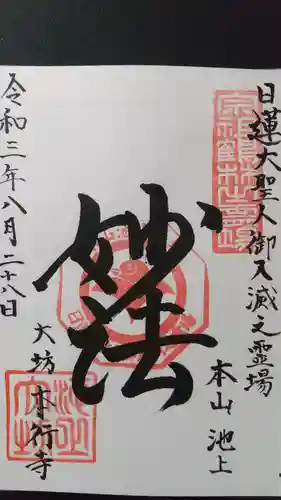 日蓮大聖人御入滅之霊場
妙法
本山 池上
大坊 本行寺
令和三年八月二十八日